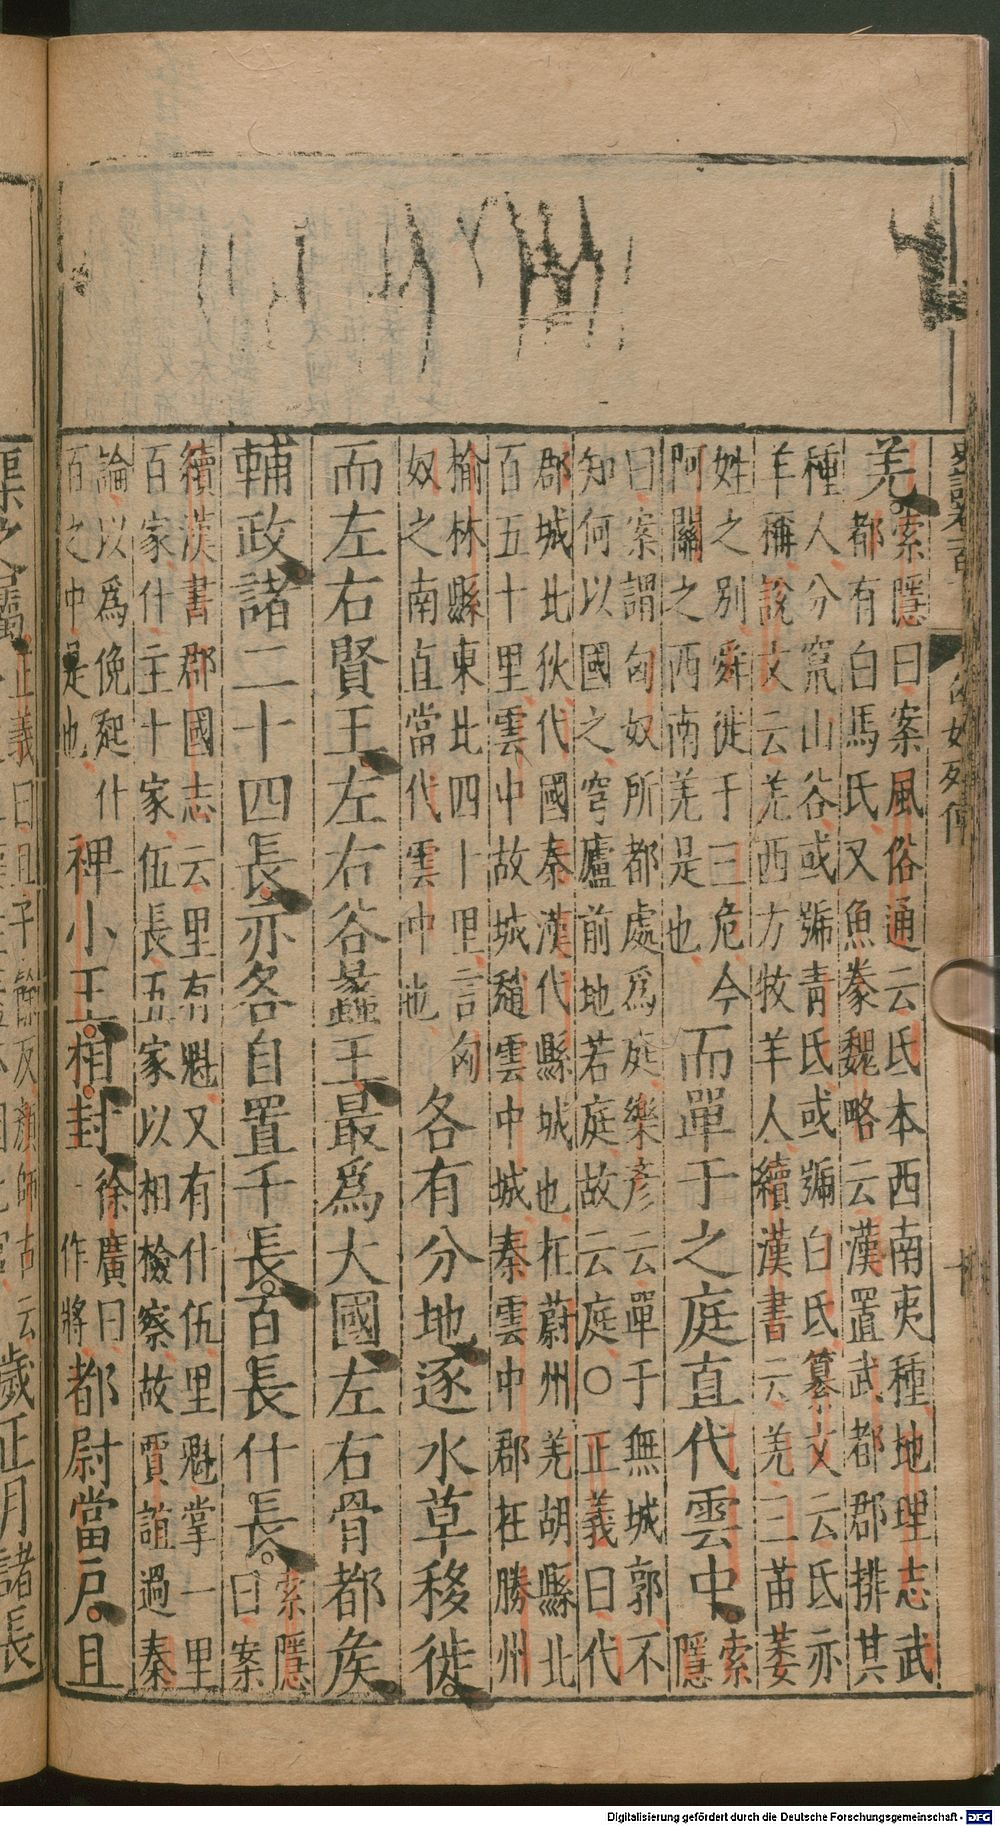 史記卷一百十 匈奴列傳 十
羌索隱曰案風俗通云氐本西南夷種地理志武
都有白馬氐又魚豢魏略云漢置武都郡排其
種人分竄山谷或號青氐或號白氐纂文云氐亦
羊稱說文云羌西方牧羊人續漢書云羌三苗姜
姓之別舜徙于三危今
阿關之西南羌是也 而單于之庭直代雲中索
隱
曰案謂匈奴所都處爲庭樂彦云單于無城郭不
知何以國之穹廬前地若庭故云庭○正義曰代
郡城北狄代國秦漢代縣城也在蔚州羌胡縣北
百五十里雲中故城趙雲中城秦雲中郡在勝州
榆林縣東北四十里言匈
奴之南直當代雲中也 各有分地逐水草移徙
而左右賢王左右谷蠡王最爲大國左右骨都矦
輔政諸二十四長亦各自置千長百長什長索隱
曰案
續漢書郡國志云里有魁又有什伍里魁掌一里
百家什主十家伍長五家以相檢察故賈誼過秦
論以爲俛起什
百之中是也 裨小王相封徐廣曰
一作將都尉當戶且
渠之屬正義曰且子餘反顏師古云
歲正月諸長
Digitalisierung gefördert durch die Deutsche Forschungsgemeinschaft - DFG